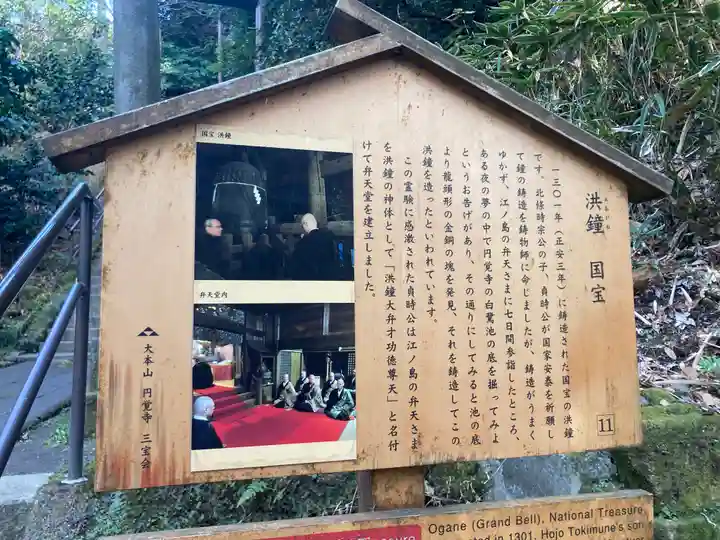 洪鐘 国宝
おおがね
一三〇一年（正安三年）に鋳造された国宝の洪鐘
です。北條時宗公の子、貞時公が国家安泰を祈願し
て鐘の鋳造を鋳物師に命じましたが、鋳造がうまく
ゆかず、江ノ島の弁天さまに七日間参詣したところ、
ある夜の夢の中で円覚寺の白鷺池の底を掘ってみよ
というお告げがあり、その通りにしてみると池の底
より龍頭形の金銅の塊を発見、それを鋳造してこの
洪鐘を造ったといわれています。
この霊験に感激された貞時公は江ノ島の弁天さま
を洪鐘の神体として「洪鐘大弁才功徳尊天」と名付
けて弁天堂を建立しました。
国宝 洪鐘
弁天堂内
大本山 円覚寺 三宝会
11
Ogane (Grand Bell), National Treasure
in 1301, Hojo Tokimune's son